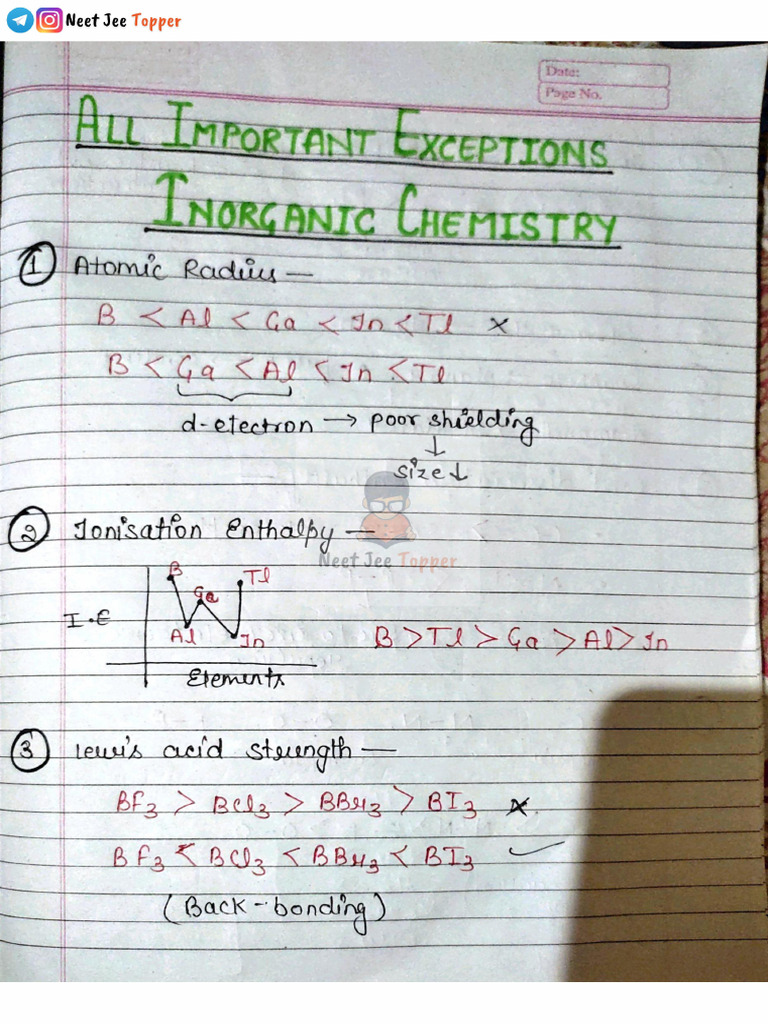 Neet Jee Topper
Date:
Page No.
ALL IMPORTANT EXCEPTIONS
INORGANIC CHEMISTRY
① Atomic Radius —
B < Al < Ga < In < Tl ×
B < Ga < Al < In < Tl
d-electron → poor shielding
↓
size ↓
② Ionisation Enthalpy —
Neet Jee Topper
B
Ga
Tl
I.E
Al
In
B > Tl > Ga > Al > In
Elements
③ Lewis acid strength —
BF3 > BCl3 > BBr3 > BI3 ×
BF3 < BCl3 < BBr3 < BI3 ✓
(Back-bonding)